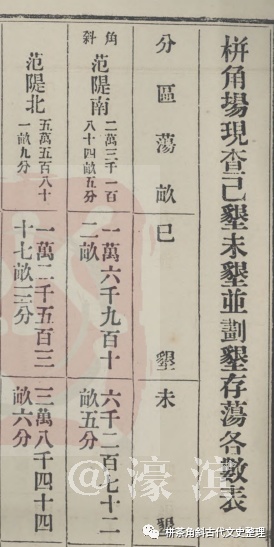 栟角場現查已墾未墾並劃墾存蕩各數表
分區蕩畝
已墾
未墾
角斜
范隄南
二萬三千一百八十四畝五分
一萬六千九百十二畝
六千二百七十二畝五分
范隄北
五萬五百八十一畝九分
一萬二千五百三十七畝三分
三萬八千四十四畝六分
@濠濱
栟茶角斜古代文史整理